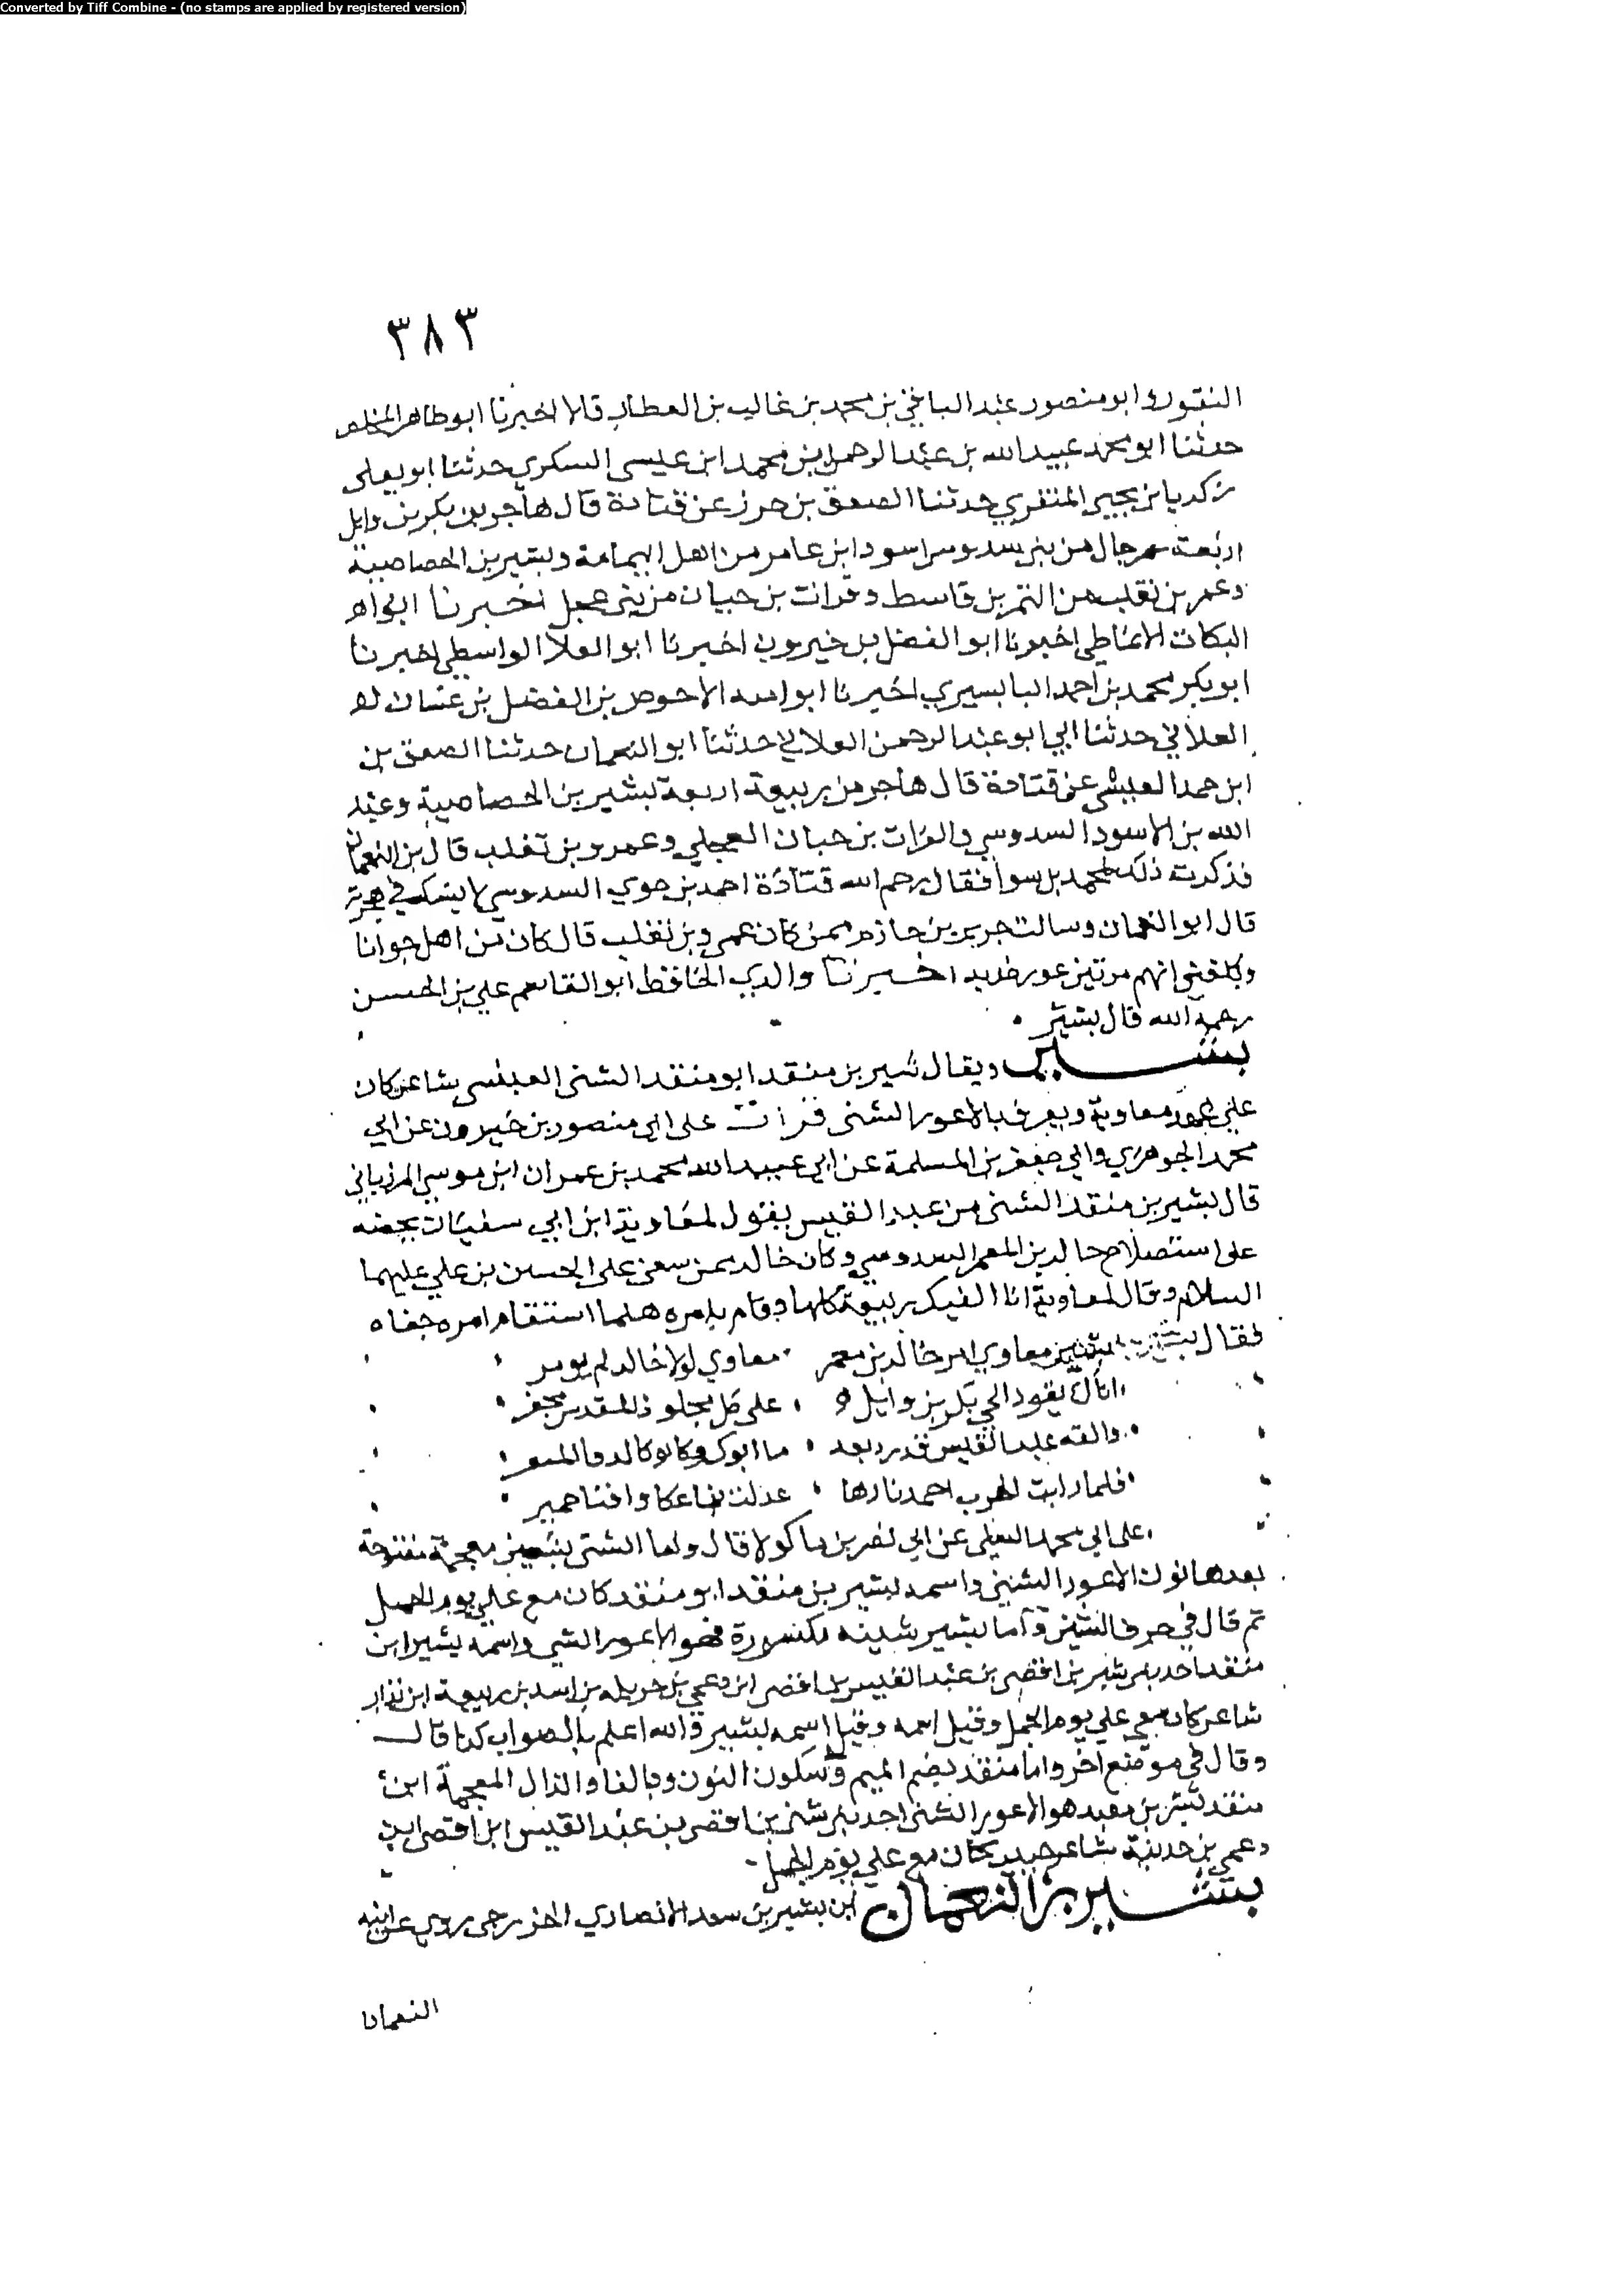 Converted by Tiff Combine - (no stamps are applied by registered version)
٣٨٣
النقور وابو منصور عبد الباقي بن محمد بن غالب بن العطار قالا اخبرنا ابو طاهر المخلص
حدثنا ابو محمد عبيد الله بن عبد الرحمن بن محمد ابن عيسى السكري حدثنا ابو يعلى
زكريا بن يحيى المنقري حدثنا الصعق بن حرز عن قتادة قال هاجر من بكر بن وايل
اربعة رجال من بني سدوس اسود ابن عامر من اهل اليمامة وبشير بن الخصاصية
وعمر بن تغلب من النمر بن قاسط وفرات بن حيان من بني عجل اخبرنا ابو
البركات الانماطي اخبرنا ابو الفضل بن خيرون اخبرنا ابو العلا الواسطي اخبرنا
ابو بكر محمد بن احمد البابسيري اخبرنا ابو امية الاحوص بن الفضل بن غسان
العلائي حدثنا ابي ابو عبد الرحمن العلائي حدثنا ابو النعمان حدثنا الصعق بن
ابن حمد العيشى عن قتادة قال هاجر من ربيعة اربعة بشير بن الخصاصية وعبد
الله بن الاسود السدوسي والفرات بن حيان العجلي وعمرو بن تغلب قال بن النعمان
فذكرت ذلك لمحمد بن سوا فقال رحم الله قتادة احمد بن جوي السدوسي لا يشك في هجرته
قال ابو النعمان وسالت جرير بن حازم ممن كان عمرو بن تغلب قال كان من اهل جواثا
وبلغني انهم اخبرنا والدي الحافظ ابو القاسم علي بن الحسن
رحمه الله قال بشير
بشير ويقال شبر بن منقد ابو منقد الشنى العبسى شاعر كان
على عهد معاوية ويعرف بالاعور الشنى قرات على ابي منصور بن خيرون عن ابي
محمد الجوهري وابي جعفر بن المسلمة عن ابي عبيد الله محمد بن عمران ابن موسى المرزباني
قال بشير بن منقد الشنى من عبد القيس يقول لمعاوية ابن ابي سفيان يحضه
على استصلاح خالد بن المعمر السدوسي وكان خالد ممن سعى على الحسين بن علي عليهما
السلام وقال لمعاوية انا الفيك ربيعة كلها وقام بامره فلما استقام امره جفاه
فقال بشير معاوي امر خالد بن معمر معاوي لولا خالد لم يومر
اتاك يقود الحي بكر بن وايل على كل
والقه عبد القيس قدر بعد ما ابوك وكانوا كالدفا
فلما رايت الحرب اخمد نارها عدلت بنا عكا وافنا حمير
على ابي محمد السلمى عن ابي نصر بن ماكولا قال واما الشنى بشين معجمة مفتوحة
بعدها نون الاعور الشني واسمه بشير بن منقد ابو منقد كان مع علي يوم الجمل
ثم قال في حرف الشين واما بشير شينه مكسورة فهو الاعور الشني واسمه بشير ابن
منقد احد بني شن بن افصى بن عبد القيس بن افصى ابن دعمي بن جديلة بن اسد بن ربيعة ابن نزار
شاعر كان مع علي يوم الجمل وقيل اسمه وقيل اسمه بشير والله اعلم بالصواب كذا قال
وقال في موضع اخر واما منقد بضم الميم وسكون النون وبالفا والذال المعجمة ابن
منقد بشر بن معبد هو الاعور الشنى احد بني شن بن افصى بن عبد القيس ابن افصى ابن
دعمي بن جديلة شاعر كان مع علي يوم الجمل
بشير بن النعمان ابن بشير بن سعد الانصاري الخزرجي روى عن ابيه
النعمان